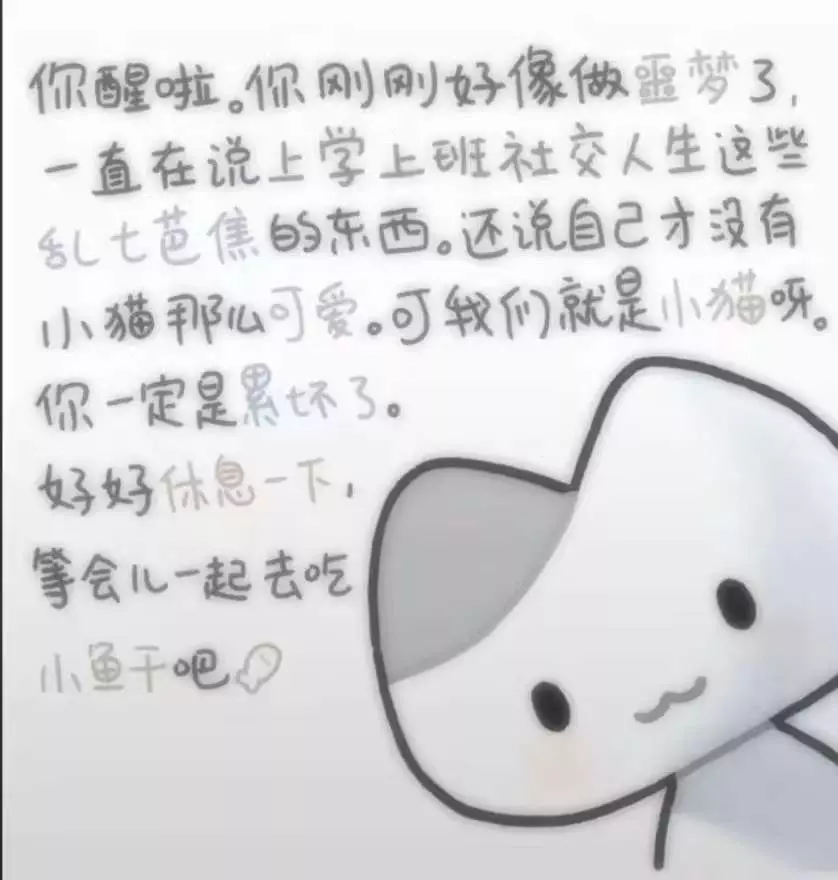 你醒啦。你刚刚好像做噩梦了，
一直在说上学上班社交人生这些
乱七芭焦的东西。还说自己才没有
小猫那么可爱。可我们就是小猫呀。
你一定是累坏了。
好好休息一下，
等会儿一起去吃
小鱼干吧